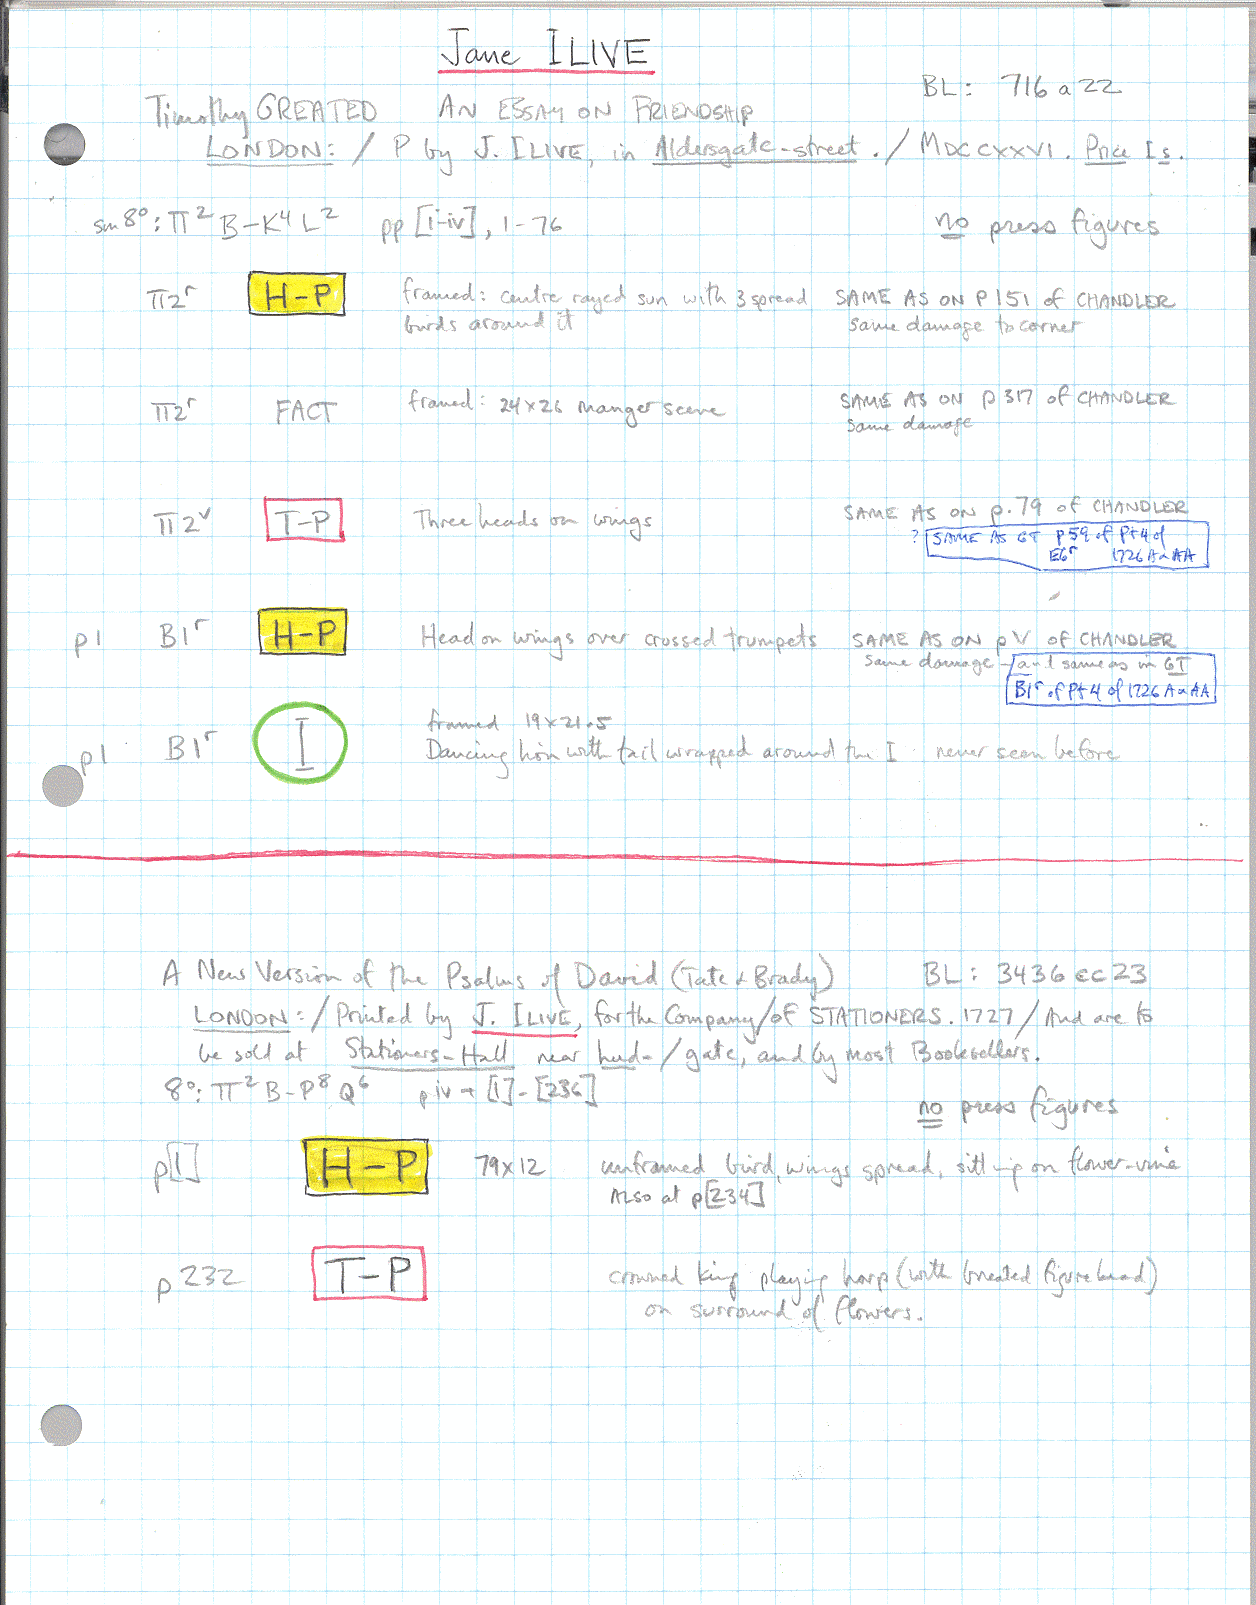 Jane ILIVE
BL: 716 a 22
Timothy GREATED AN ESSAY ON FRIENDSHIP
LONDON: / P by J. ILIVE, in Aldersgate-street. / MDCCXXVI. Price 1s.
sm 8°: π² B-K⁴ L² pp [i-iv], 1-76 no press figures
π2ʳ H-P framed: centre rayed sun with 3 spread SAME AS ON P 151 of CHANDLER
birds around it same damage to corner
π2ʳ FACT framed: 24×26 manger scene SAME AS ON p 317 of CHANDLER
same damage
π2ᵛ T-P Three heads on wings SAME AS ON p. 79 of CHANDLER
? SAME AS GT p59 of Pt 4 of
E6ʳ 1726 A AA
p1 B1ʳ H-P Head on wings over crossed trumpets SAME AS ON p V of CHANDLER
same damage - and same as in GT
B1ʳ of Pt 4 of 1726 A AA
p1 B1ʳ I framed 19×21.5
Dancing lion with tail wrapped around the I never seen before
A New Version of the Psalms of David (Tate & Brady) BL: 3436 cc 23
LONDON: / Printed by J. ILIVE, for the Company / of STATIONERS. 1727 / And are to
be sold at Stationers-Hall near Lud- / gate, and by most Booksellers.
8°: π² B-P⁸ Q⁶ p iv + [1]-[236]
no press figures
p[1] H-P 79×12 unframed bird, wings spread, sitting on flower-vine
ALSO at p[234]
p 232 T-P crowned king playing harp (with breasted figurehead)
on surround of flowers.